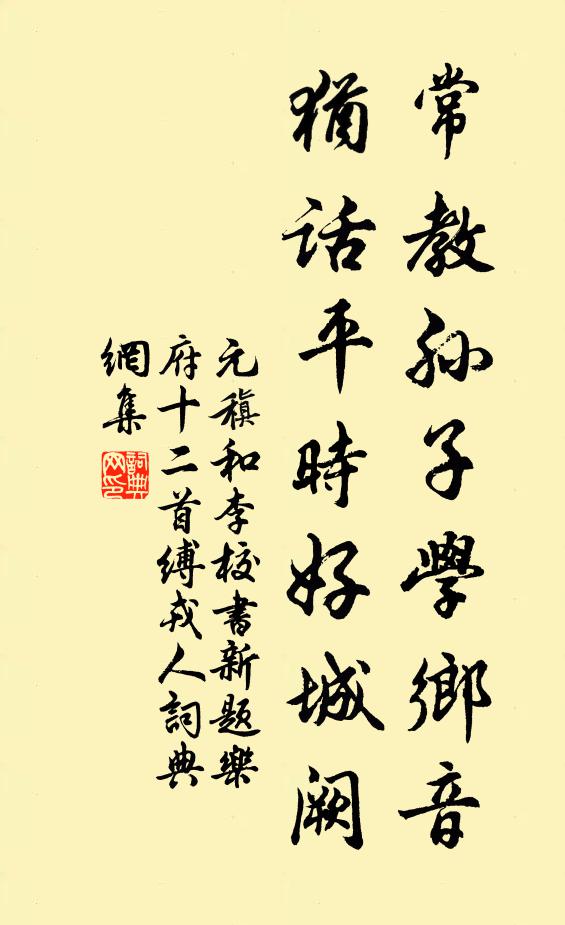 常教孙子學鄉音
猶话平時好城阙
元稹和李校書新题樂
府十二首缚戎人詞典
網集
詞典網印